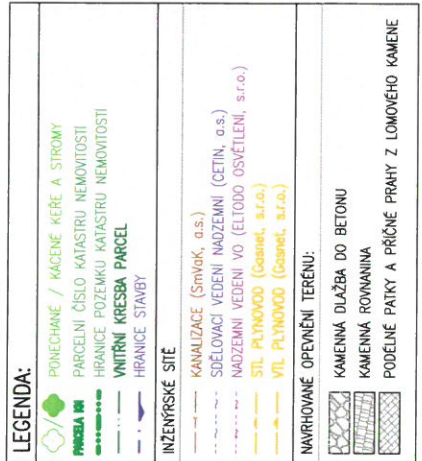 LEGENDA:
PONECHANÉ / KÁCENÉ KEŘE A STROMY
PARCELA KN PARCELNÍ ČÍSLO KATASTRU NEMOVITOSTÍ
HRANICE POZEMKU KATASTRU NEMOVITOSTÍ
VNITŘNÍ KRESBA PARCEL
HRANICE STAVBY
INŽENÝRSKÉ SÍTĚ
KANALIZACE (SmVaK, a.s.)
SDĚLOVACÍ VEDENÍ NADZEMNÍ (CETIN, a.s.)
NADZEMNÍ VEDENÍ VO (ELTODO OSVĚTLENÍ, s.r.o.)
STL PLYNOVOD (Gasnet, s.r.o.)
VTL PLYNOVOD (Gasnet, s.r.o.)
NAVRHOVANÉ OPEVNĚNÍ TERÉNU:
KAMENNÁ DLAŽBA DO BETONU
KAMENNÁ ROVNANINA
PODÉLNÉ PATKY A PŘÍČNÉ PRAHY Z LOMOVÉHO KAMENE